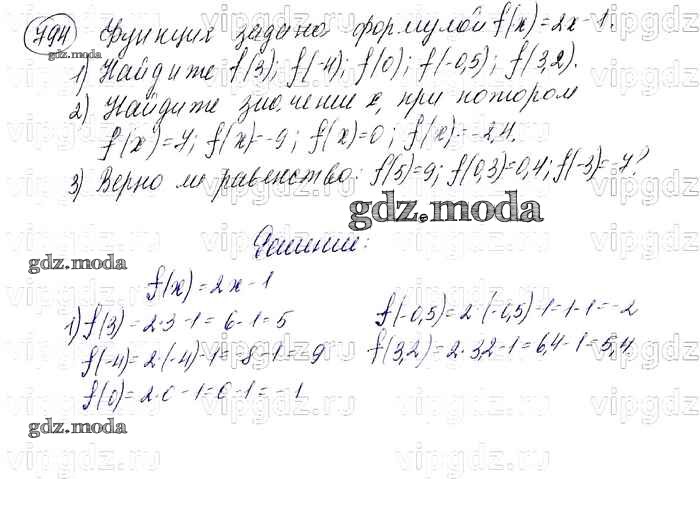 794 Функция задана формулой f(x)=2x-1.
gdz.moda
1) Найдите f(3); f(-4); f(0); f(-0,5); f(3,2).
2) Найдите значение x, при котором
f(x)=7; f(x)=-9; f(x)=0; f(x)=-2,4.
3) Верно ли равенство: f(5)=9; f(0,3)=0,4; f(-3)=-7?
gdz.moda
Решение:
gdz.moda
f(x)=2x-1
1) f(3)=2·3-1=6-1=5
f(-0,5)=2·(-0,5)-1=-1-1=-2
f(-4)=2·(-4)-1=-8-1=-9
f(3,2)=2·3,2-1=6,4-1=5,4.
f(0)=2·0-1=0-1=-1
gdz.moda
vipgdz.ru